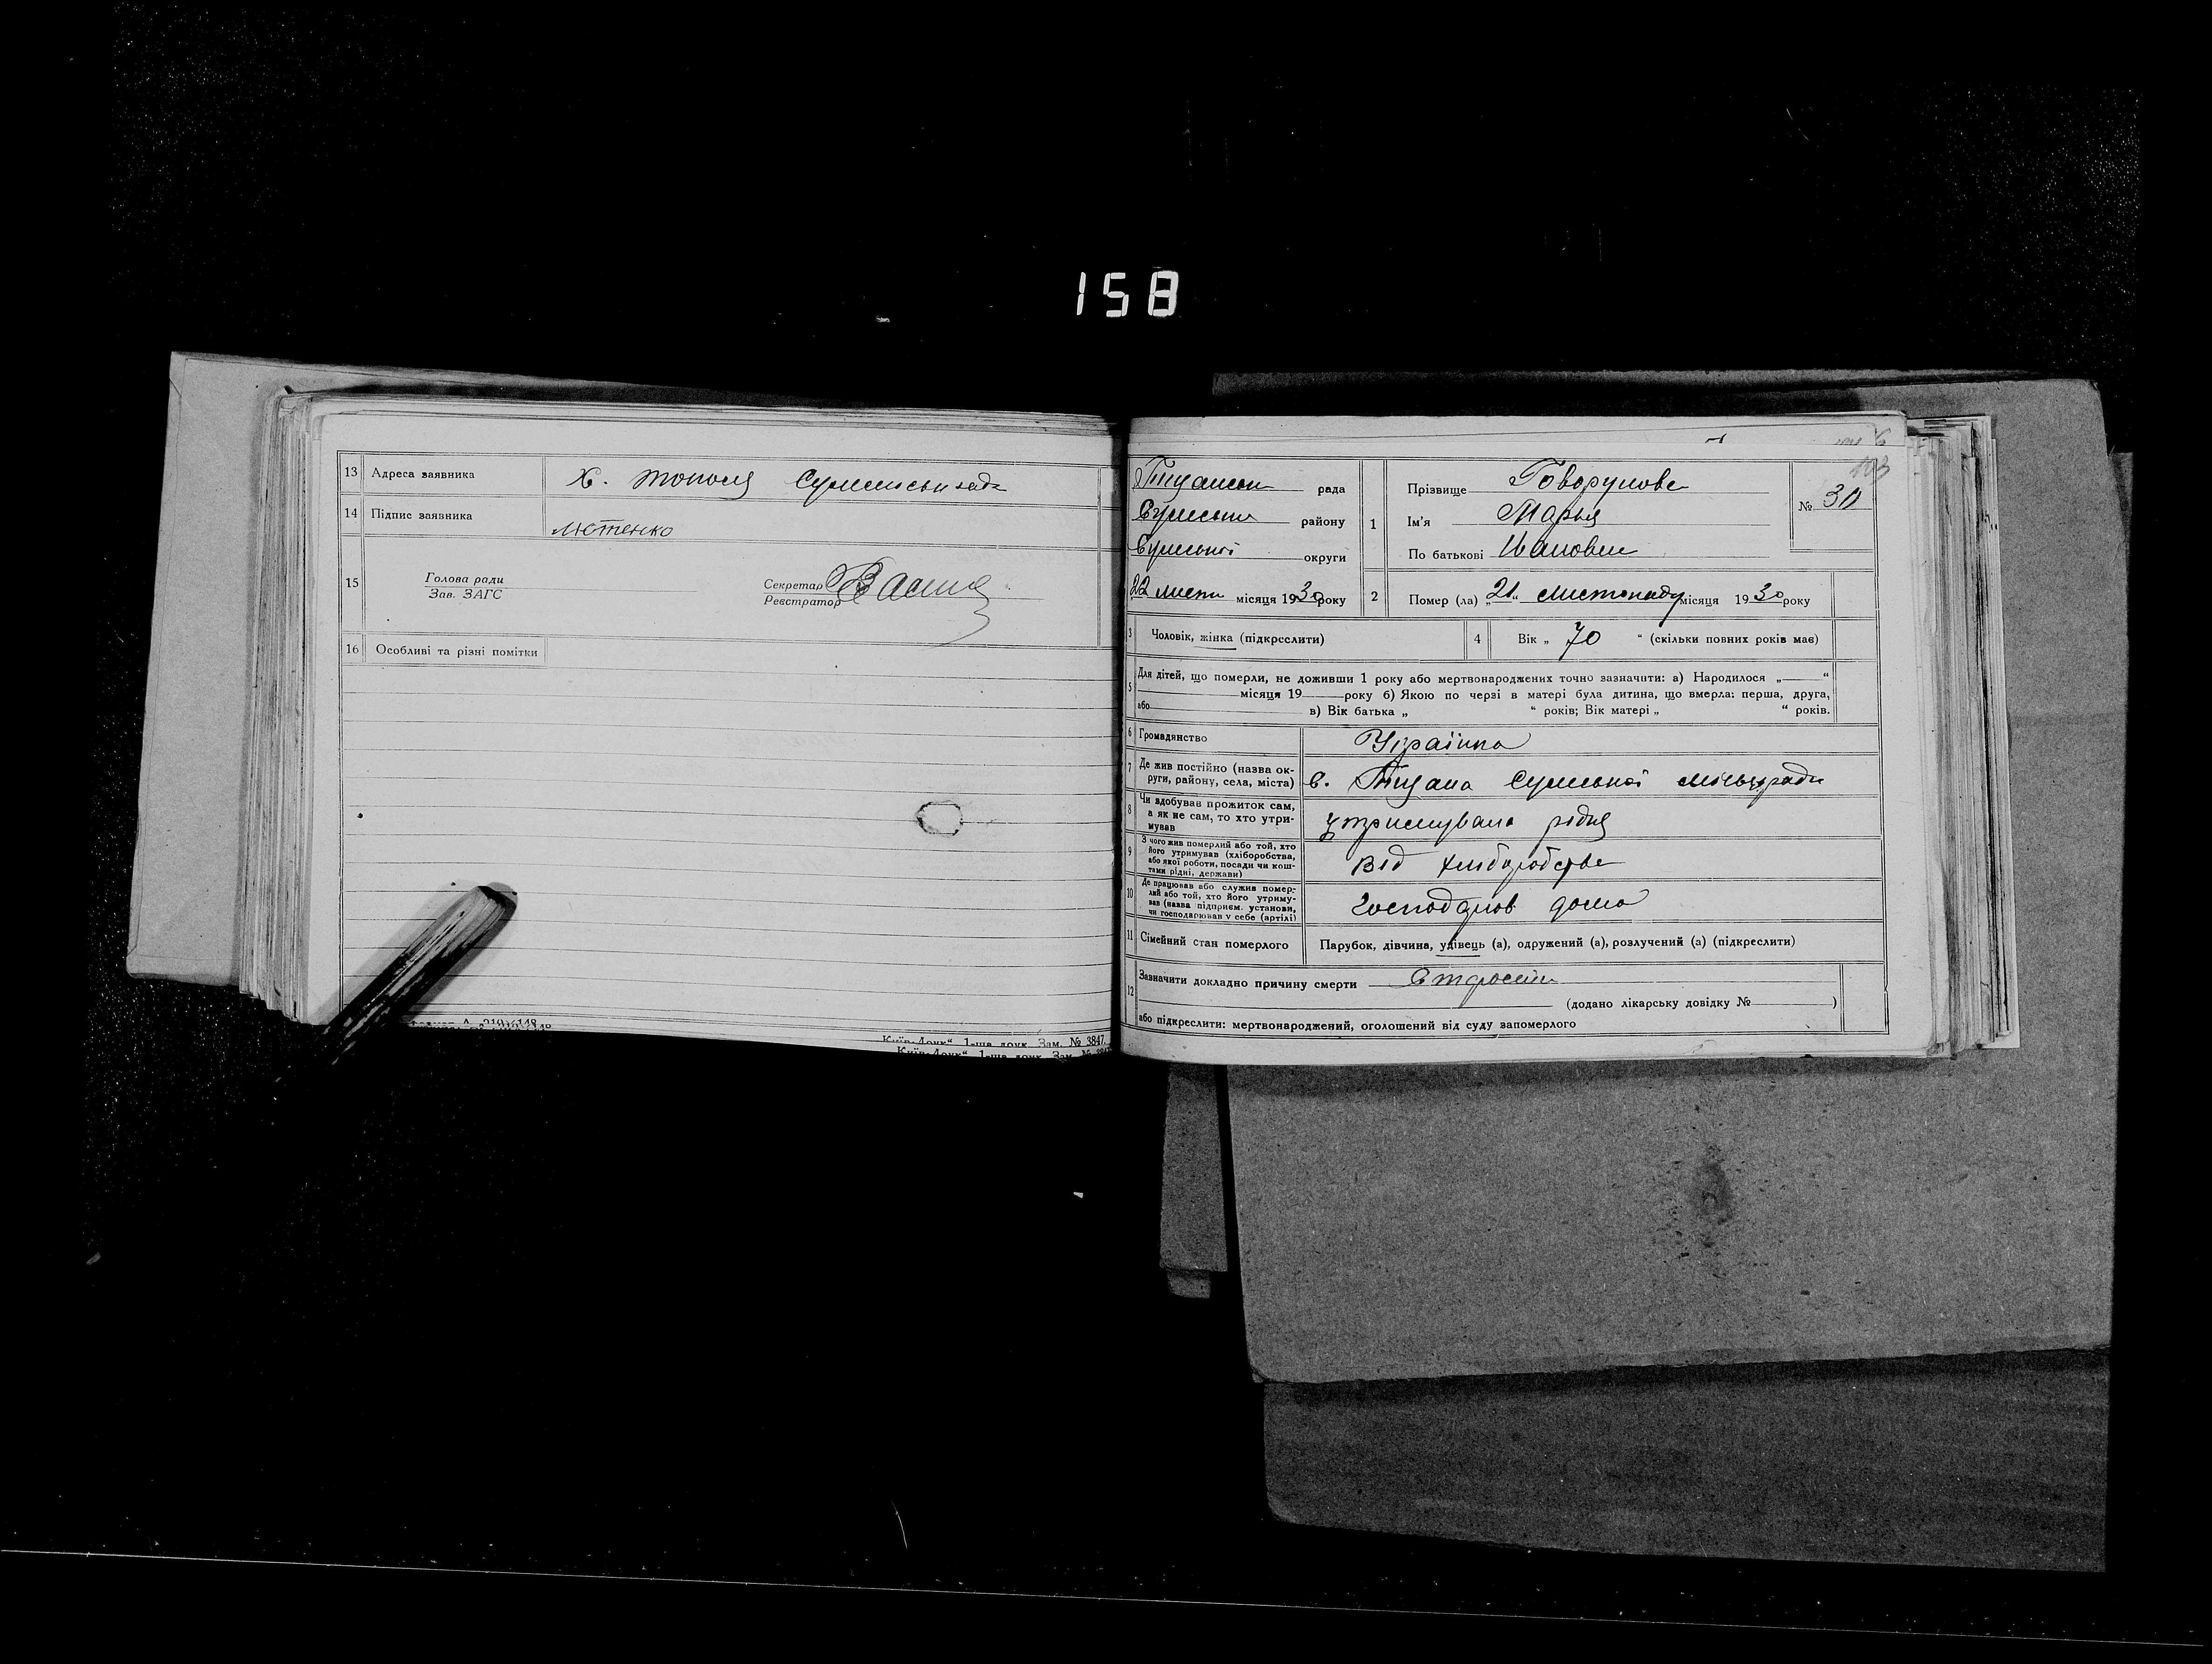 158
13 Адреса заявника Х. Тополя
14 Підпис заявника Лютенко
15 Голова ради
Зав. ЗАГС
Секретар
Реєстратор
16 Особливі та різні помітки
"Київ-Друк" 1-ша друк. Зам. № 3847.
рада
Сумськи району
Сумської округи
22 листп місяця 1930 року
1 Прізвище Говорунова
Ім'я Марья
По батькові Ивановне
№ 30
2 Помер (ла) „21“ Листопаду місяця 1930 року
3 Чоловік, жінка (підкреслити)
4 Вік „ 70 “ (скільки повних років має)
5 Для дітей, що померли, не доживши 1 року або мертвонароджених точно зазначити: а) Народилося „ “
місяця 19 року б) Якою по черзі в матері була дитина, що вмерла: перша, друга,
або в) Вік батька „ “ років; Вік матері „ “ років.
6 Громадянство Украінка
7 Де жив постійно (назва округи, району, села, міста) с. Сумської міськради
8 Чи здобував прожиток сам,
а як не сам, то хто утри-
мував утримувала рідня
9 З чого жив померлий або той, хто
його утримував (хліборобства,
або якої роботи, посади чи кош-
тами рідні, держави) від хліборобства
10 Де працював або служив помер-
лий або той, хто його утриму-
вав (назва підприєм. установи,
чи господарював у себе (артілі) господарюв дома
11 Сімейний стан померлого Парубок, дівчина, удівець (а), одружений (а), розлучений (а) (підкреслити)
12 Зазначити докладно причину смерти Старости
(додано лікарську довідку № )
або підкреслити: мертвонароджений, оголошений від суду запомерлого